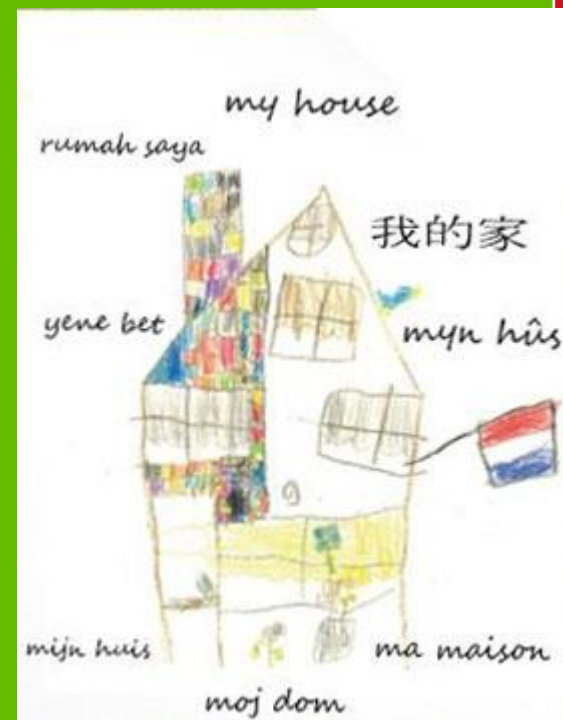 my house
rumah saya
我的家
yene bet
myn hûs
mijn huis
ma maison
moj dom